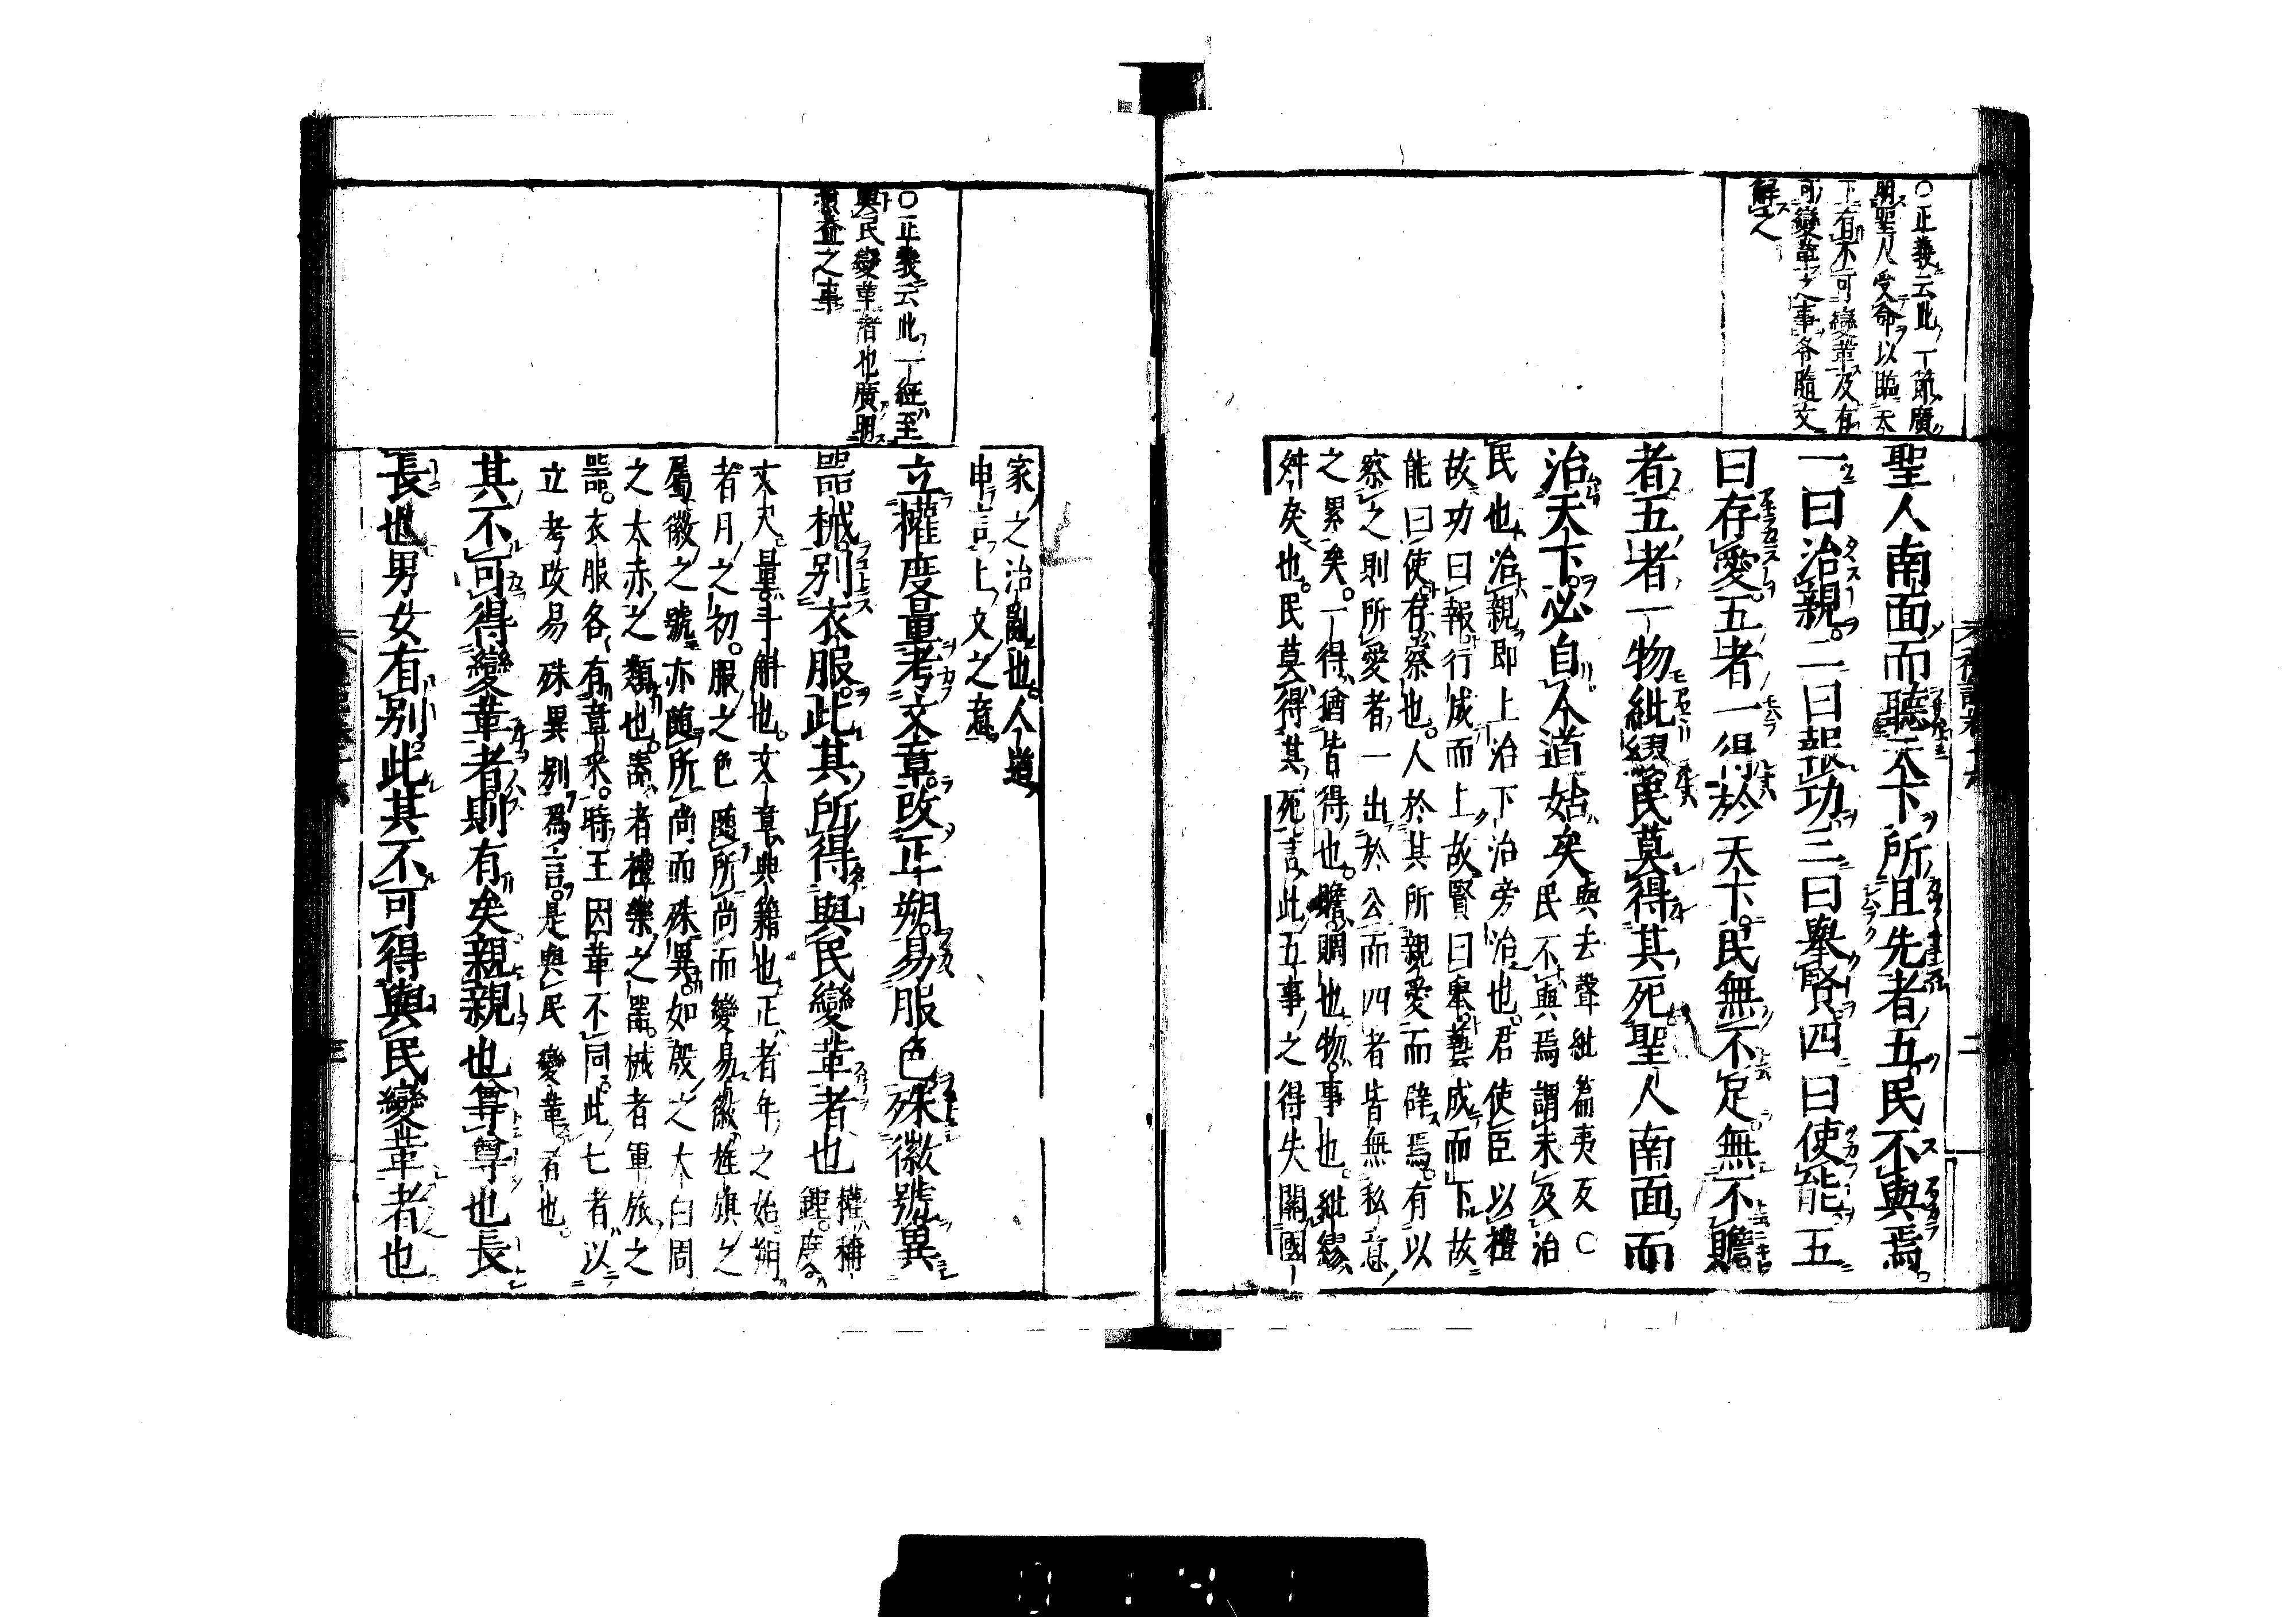 ○正義云此一節廣
明聖人受命以臨天
下有不可變革及有
可變革之事各隨文
解之
聖人南面而聽天下所且先者五民不與焉
一曰治親二曰報功三曰舉賢四曰使能五
曰存愛五者一得於天下民無不足無不贍
者五者一物紕繆民莫得其死聖人南面而
治天下必自人道始矣與去聲紕篇夷反○
民不與焉謂未及治
民也治親即上治下治旁治也君使臣以禮
故功曰報行成而上故賢曰舉藝成而下故
能曰使存察也人於其所親愛而辟焉有以
察之則所愛者一出於公而四者皆無私意
之累矣一得猶皆得也贍賙也物事也紕繆
舛戾也民莫得其死言此五事之得失關國
○正義云此一經至
與民變革者也廣明
損益之事
家之治亂也人道
申言上文之意
立權度量考文章改正朔易服色殊徽號異
器械別衣服此其所得與民變革者也權稱
錘度
丈尺量斗斛也文章典籍也正者年之始朔
者月之初服之色隨所尚而變易徽旌旗之
屬徽之號亦隨所尚而殊異如殷之大白周
之太赤之類也器者禮樂之器械者軍旅之
器衣服各有章采時王因革不同此七者以
立考改易殊異別為言是與民變革者也
其不可得變革者則有矣親親也尊尊也長
長也男女有別此其不可得與民變革者也